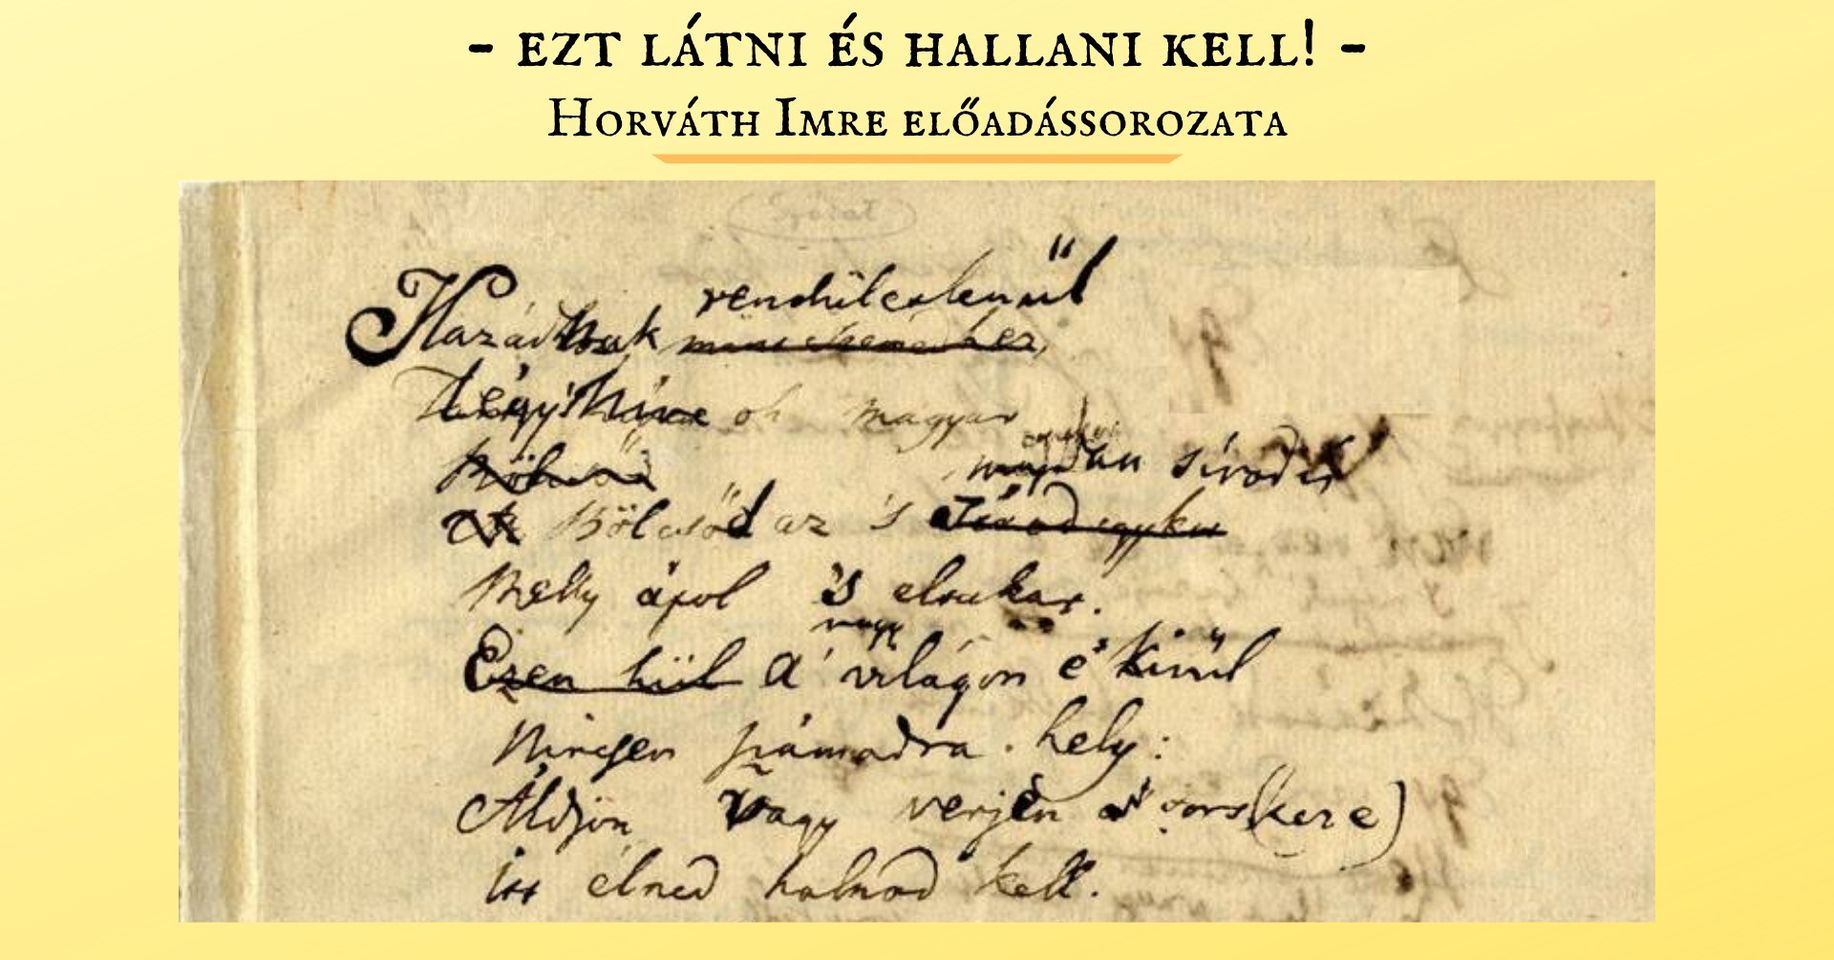 - EZT LÁTNI ÉS HALLANI KELL! -
HORVÁTH IMRE ELŐADÁSSOROZATA
rendületlenűl
Hazádnak
Légy híve oh magyar
majdan sírod is
Bölcsőd az 's Sírod egykor
Melly ápol 's eltakar.
nagy
Ezen kül A' világon e' kivűl
Nincsen számodra hely:
Áldjon vagy verjen a' sors(keze)
itt élned halnod kell.